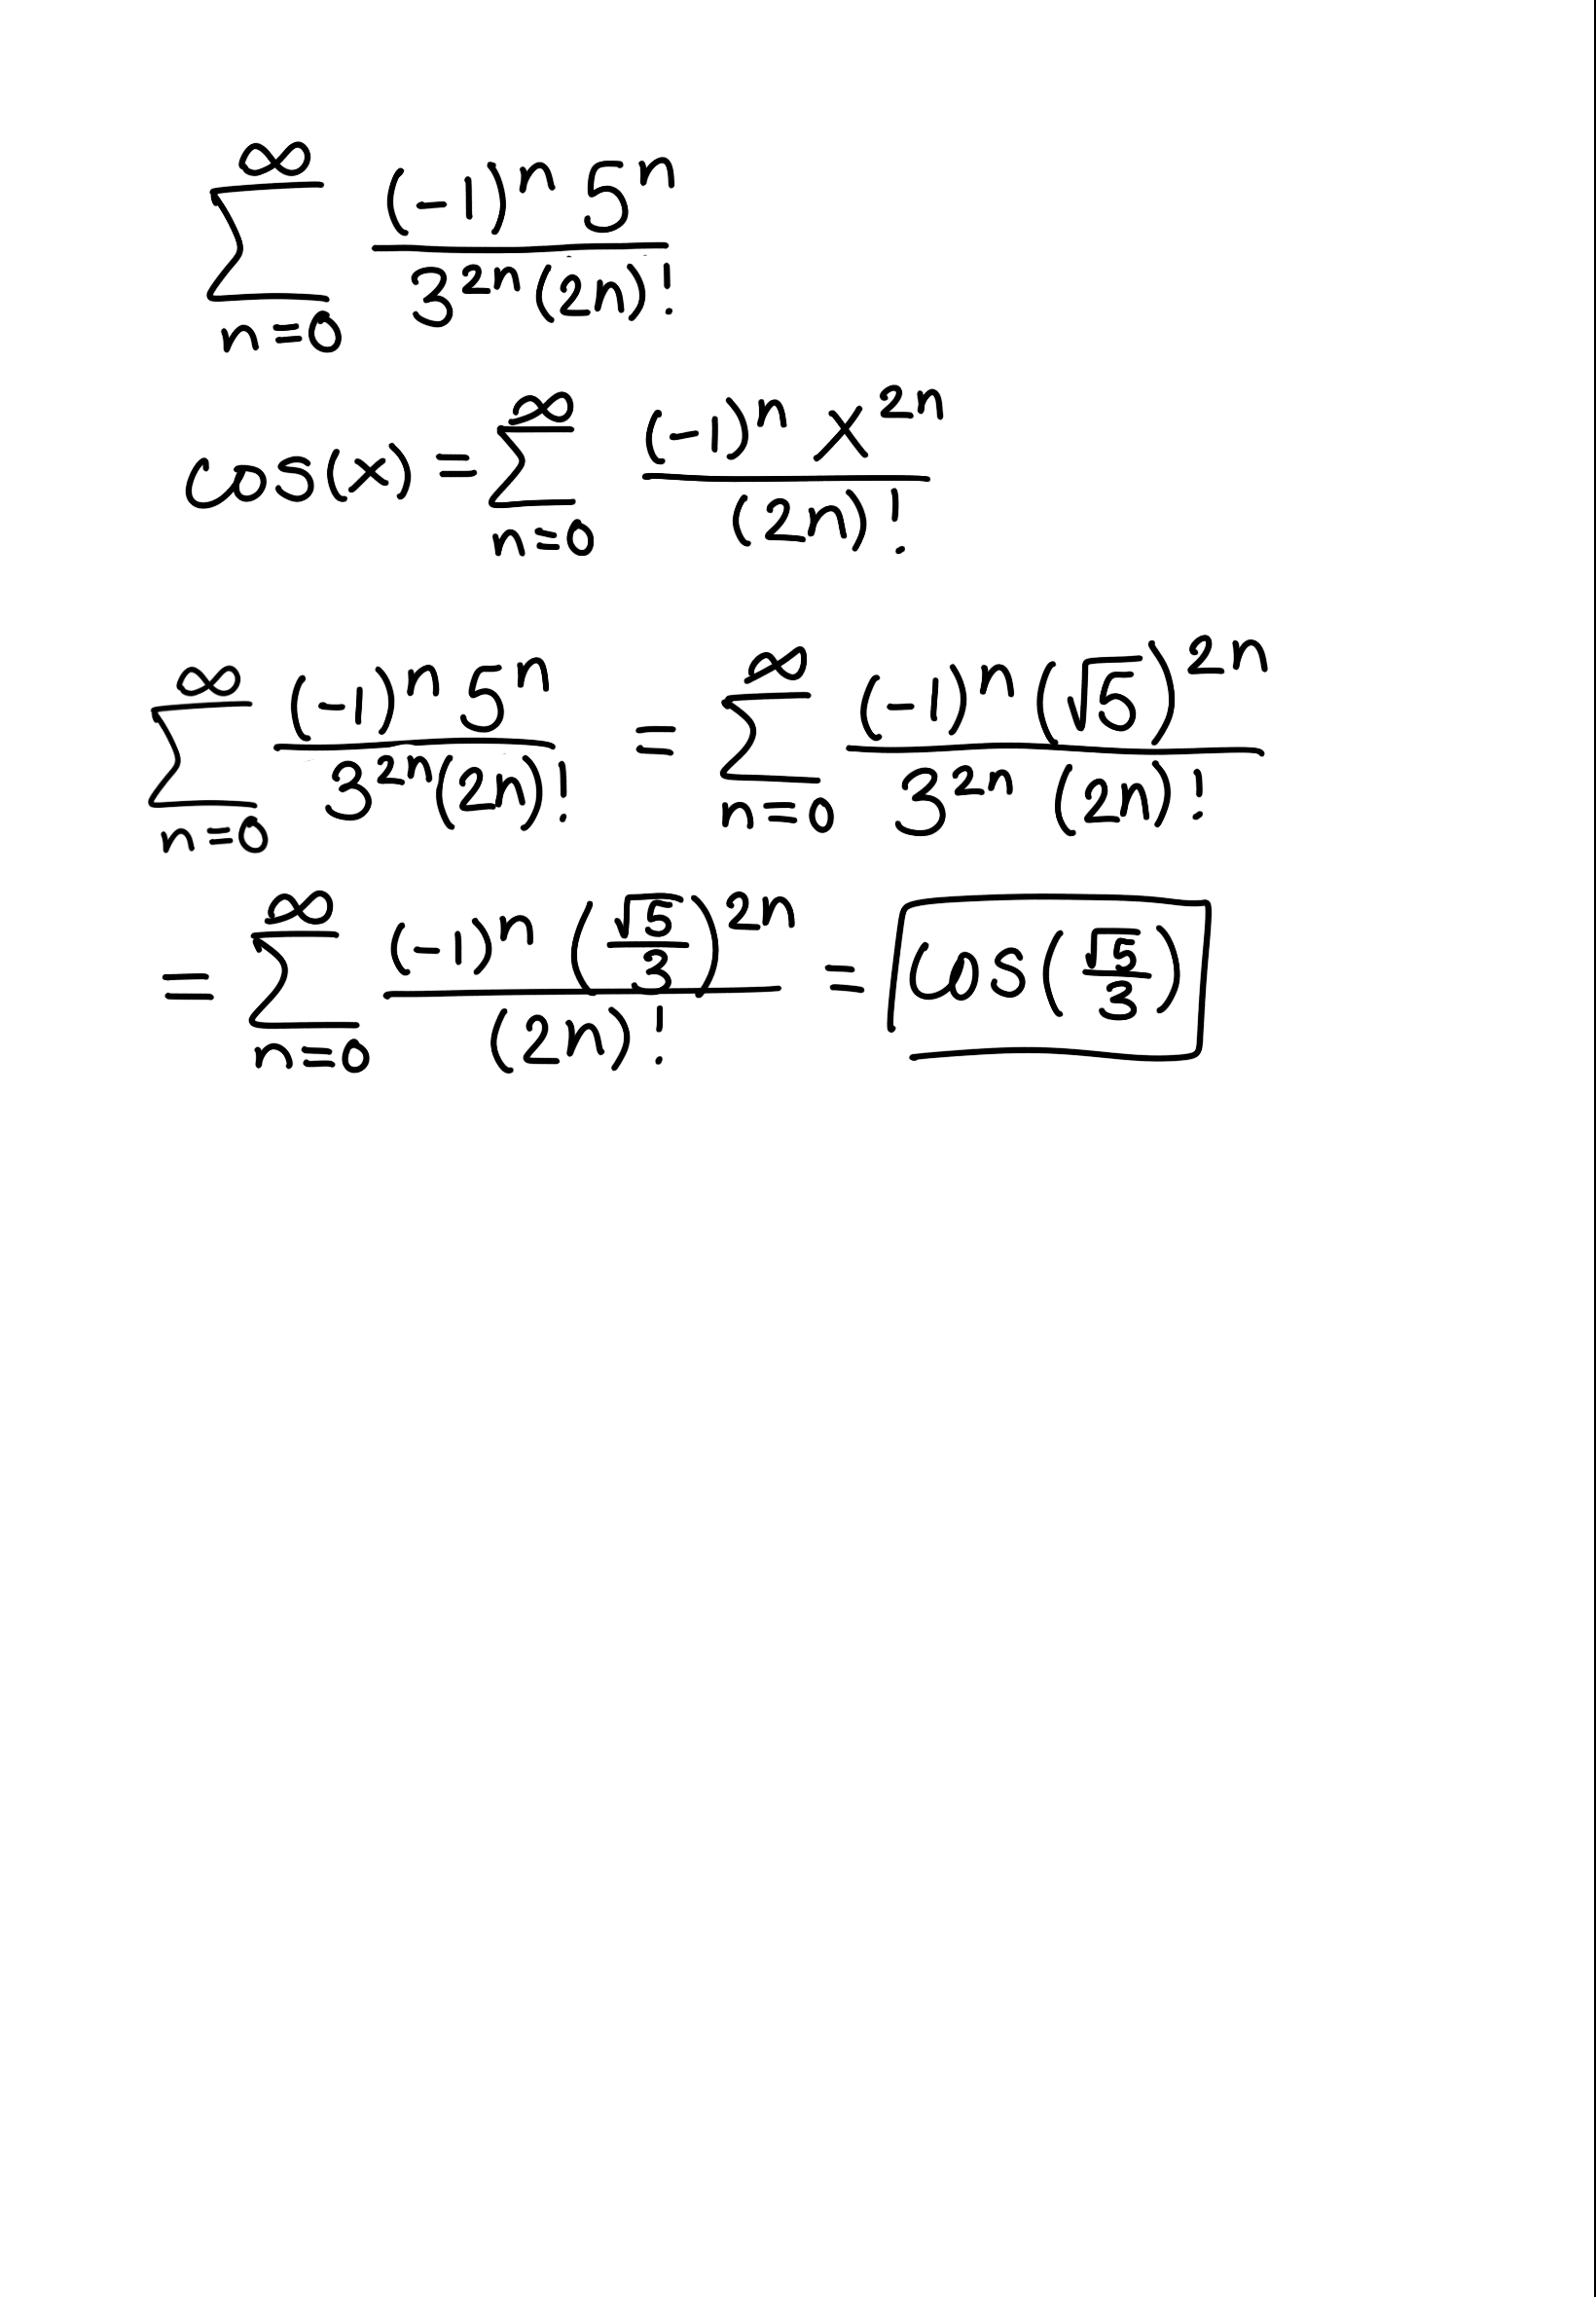 $\sum_{n=0}^{\infty} \frac{(-1)^n 5^n}{3^{2n}(2n)!}$
$\cos(x) = \sum_{n=0}^{\infty} \frac{(-1)^n x^{2n}}{(2n)!}$
$\sum_{n=0}^{\infty} \frac{(-1)^n 5^n}{3^{2n}(2n)!} = \sum_{n=0}^{\infty} \frac{(-1)^n (\sqrt{5})^{2n}}{3^{2n}(2n)!}$
$= \sum_{n=0}^{\infty} \frac{(-1)^n \left(\frac{\sqrt{5}}{3}\right)^{2n}}{(2n)!} = \boxed{\cos\left(\frac{\sqrt{5}}{3}\right)}$